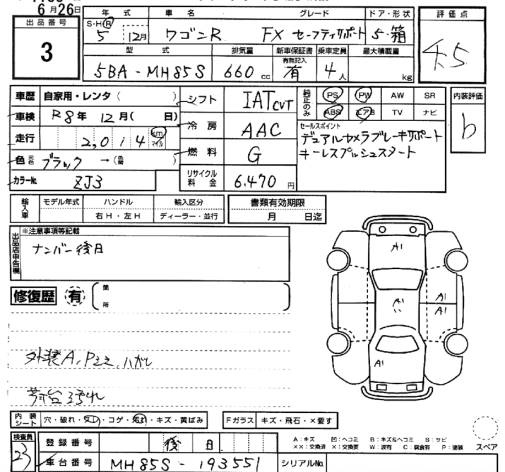 6月26日
出品番号 3
年式 車名 グレード ドア・形状 評価点
S・H・R 5 12月 ワゴンR FX セーフティサポート 5・箱 4.5
型式 排気量 新車保証書 乗車定員 最大積載量
5BA-MH85S 660cc 有無記入 有 4人 kg
車歴 自家用・レンタ( ) シフト IAT CVT 純正のみ PS PW AW SR 内装評価
車検 R8年12月( 日) 冷房 AAC ABS エアB TV ナビ b
走行 2,014 km マイル 燃料 G セールスポイント
色 元色 ブラック →(色替 ) デュアルカメラブレーキサポート
キーレスプッシュスタート
カラーNo. ZJ3 リサイクル料金 6,470円
輸入車 モデル年式 ハンドル 輸入区分 書類有効期限
右H・左H ディーラー・並行 月 日迄
出品店申告欄 ※注意事項等記載
ナンバー後日
修復歴 有 箇所
A1
A1 A1
A1
A1
外装A,Pミニ,ハガレ
内装シート 穴・破れ・ヨゴレ・コゲ・キズ・黄ばみ Fガラス キズ・飛石・×要す
検査員 23 登録番号 後日 A:キズ 凹:ヘコミ B:キズ&ヘコミ S:サビ
××:交換済 ×:要交換 W:波有 C:腐食有 P:塗装 スペア
車台番号 MH85S-193551 シリアルNo.